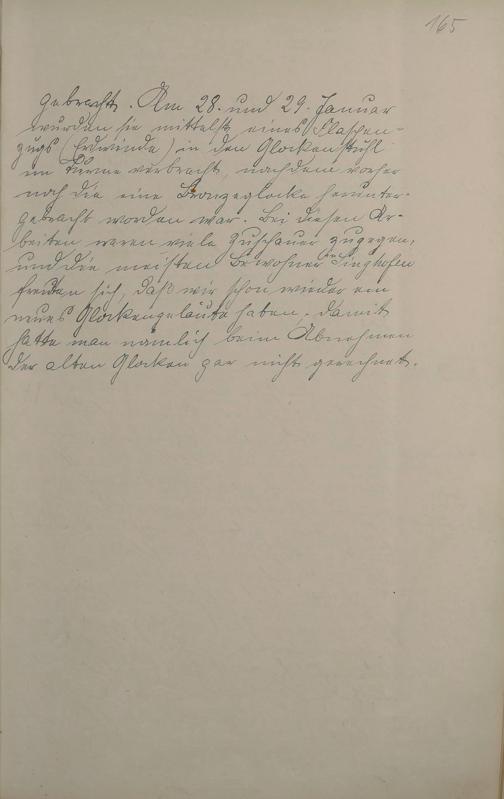 165
gebracht. Am 28. und 29. Januar
wurden sie mittelst eines Flaschen-
zugs (Erdwinde) in den Glockenstuhl
im Turme verbracht, nachdem vorher
noch die eine Bronzeglocke herunter-
gebracht worden war. Bei diesen Ar-
beiten waren viele Zuschauer zugegen,
und die meisten Bewohner in Singhofen
freuten sich, daß wir schon wieder ein
neues Glockengeläute haben. Damit
hatte man nämlich beim Abnehmen
der alten Glocken gar nicht gerechnet.